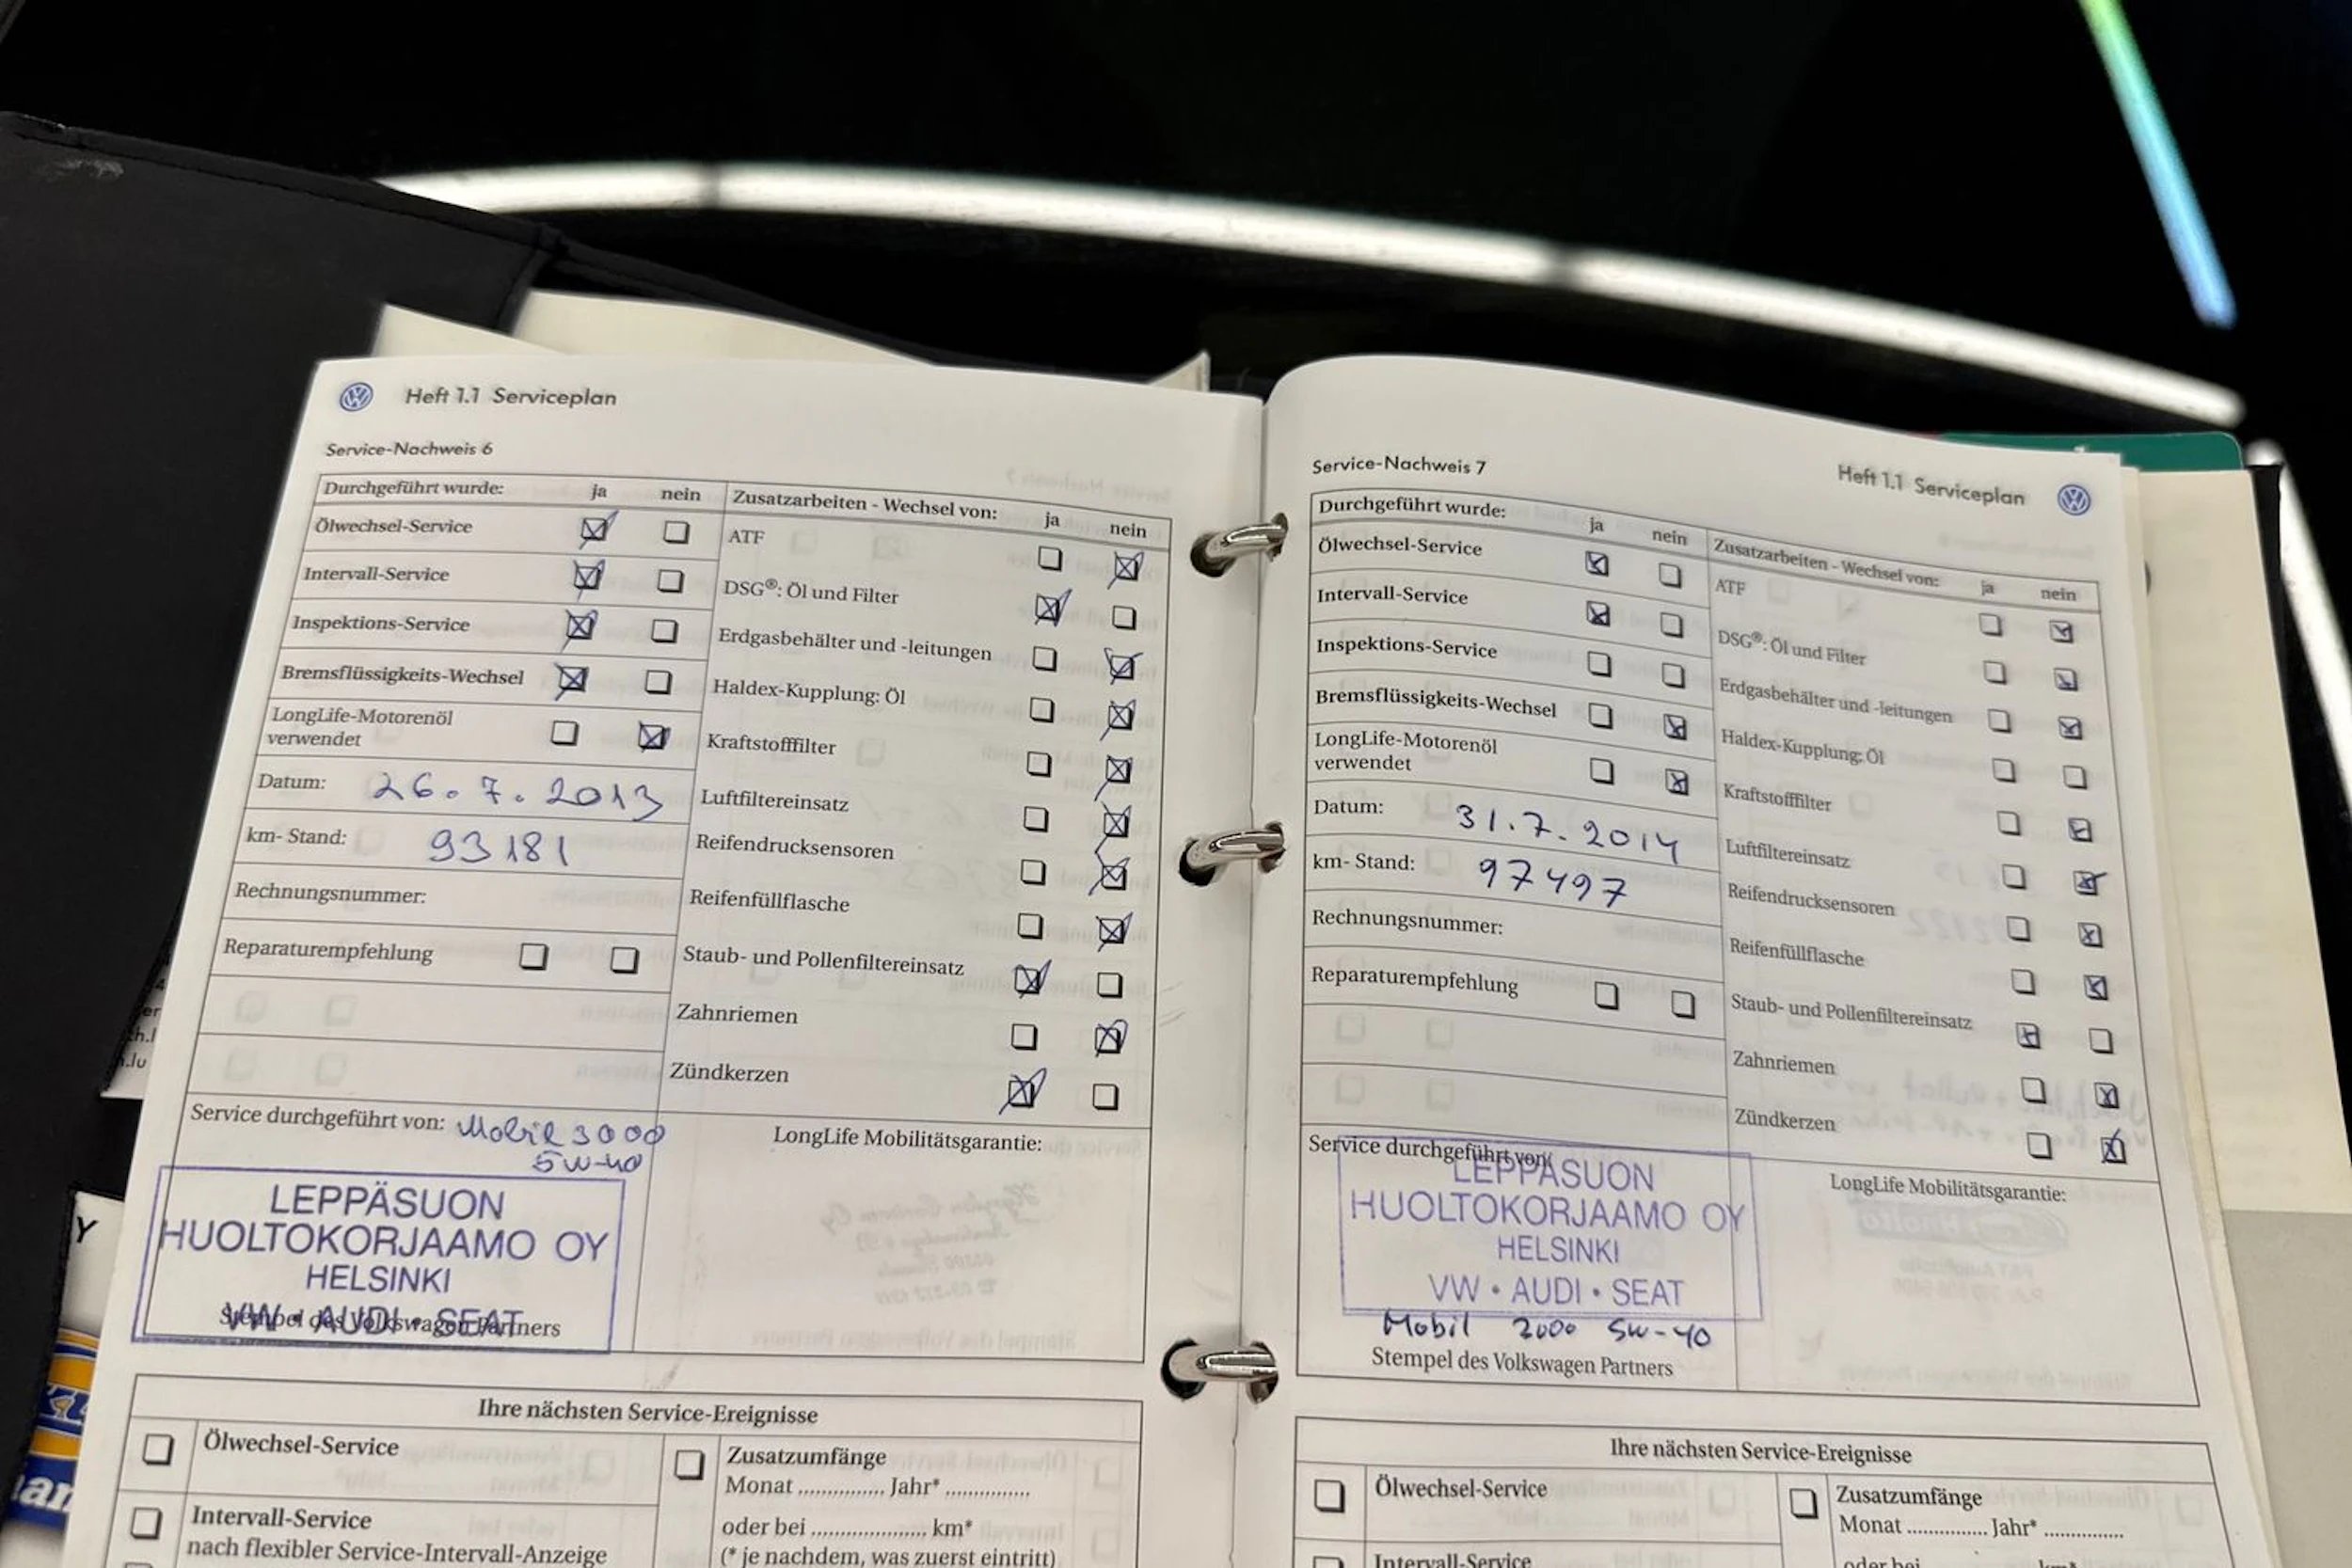 Heft 1.1 Serviceplan
Service-Nachweis 6
Durchgeführt wurde: ja nein
Ölwechsel-Service
Intervall-Service
Inspektions-Service
Bremsflüssigkeits-Wechsel
LongLife-Motorenöl
verwendet
Datum: 26.7.2013
km- Stand: 93181
Rechnungsnummer:
Reparaturempfehlung
Zusatzarbeiten - Wechsel von: ja nein
ATF
DSG®: Öl und Filter
Erdgasbehälter und -leitungen
Haldex-Kupplung: Öl
Kraftstofffilter
Luftfiltereinsatz
Reifendrucksensoren
Reifenfüllflasche
Staub- und Pollenfiltereinsatz
Zahnriemen
Zündkerzen
Service durchgeführt von: Mobil 3000
5W-40
LEPPÄSUON
HUOLTOKORJAAMO OY
HELSINKI
VW • AUDI • SEAT
Stempel des Volkswagen Partners
LongLife Mobilitätsgarantie:
Ihre nächsten Service-Ereignisse
Ölwechsel-Service
Intervall-Service
nach flexibler Service-Intervall-Anzeige
Zusatzumfänge
Monat ............... Jahr* ...............
oder bei ..................... km*
(* je nachdem, was zuerst eintritt)
Service-Nachweis 7
Heft 1.1 Serviceplan
Durchgeführt wurde: ja nein
Ölwechsel-Service
Intervall-Service
Inspektions-Service
Bremsflüssigkeits-Wechsel
LongLife-Motorenöl
verwendet
Datum: 31.7.2014
km- Stand: 97497
Rechnungsnummer:
Reparaturempfehlung
Zusatzarbeiten - Wechsel von: ja nein
ATF
DSG®: Öl und Filter
Erdgasbehälter und -leitungen
Haldex-Kupplung: Öl
Kraftstofffilter
Luftfiltereinsatz
Reifendrucksensoren
Reifenfüllflasche
Staub- und Pollenfiltereinsatz
Zahnriemen
Zündkerzen
Service durchgeführt von:
LEPPÄSUON
HUOLTOKORJAAMO OY
HELSINKI
VW • AUDI • SEAT
Mobil 2000 5W-40
Stempel des Volkswagen Partners
LongLife Mobilitätsgarantie:
Ihre nächsten Service-Ereignisse
Ölwechsel-Service
Intervall-Service
Zusatzumfänge
Monat ............... Jahr* ...............
oder bei ..................... km*